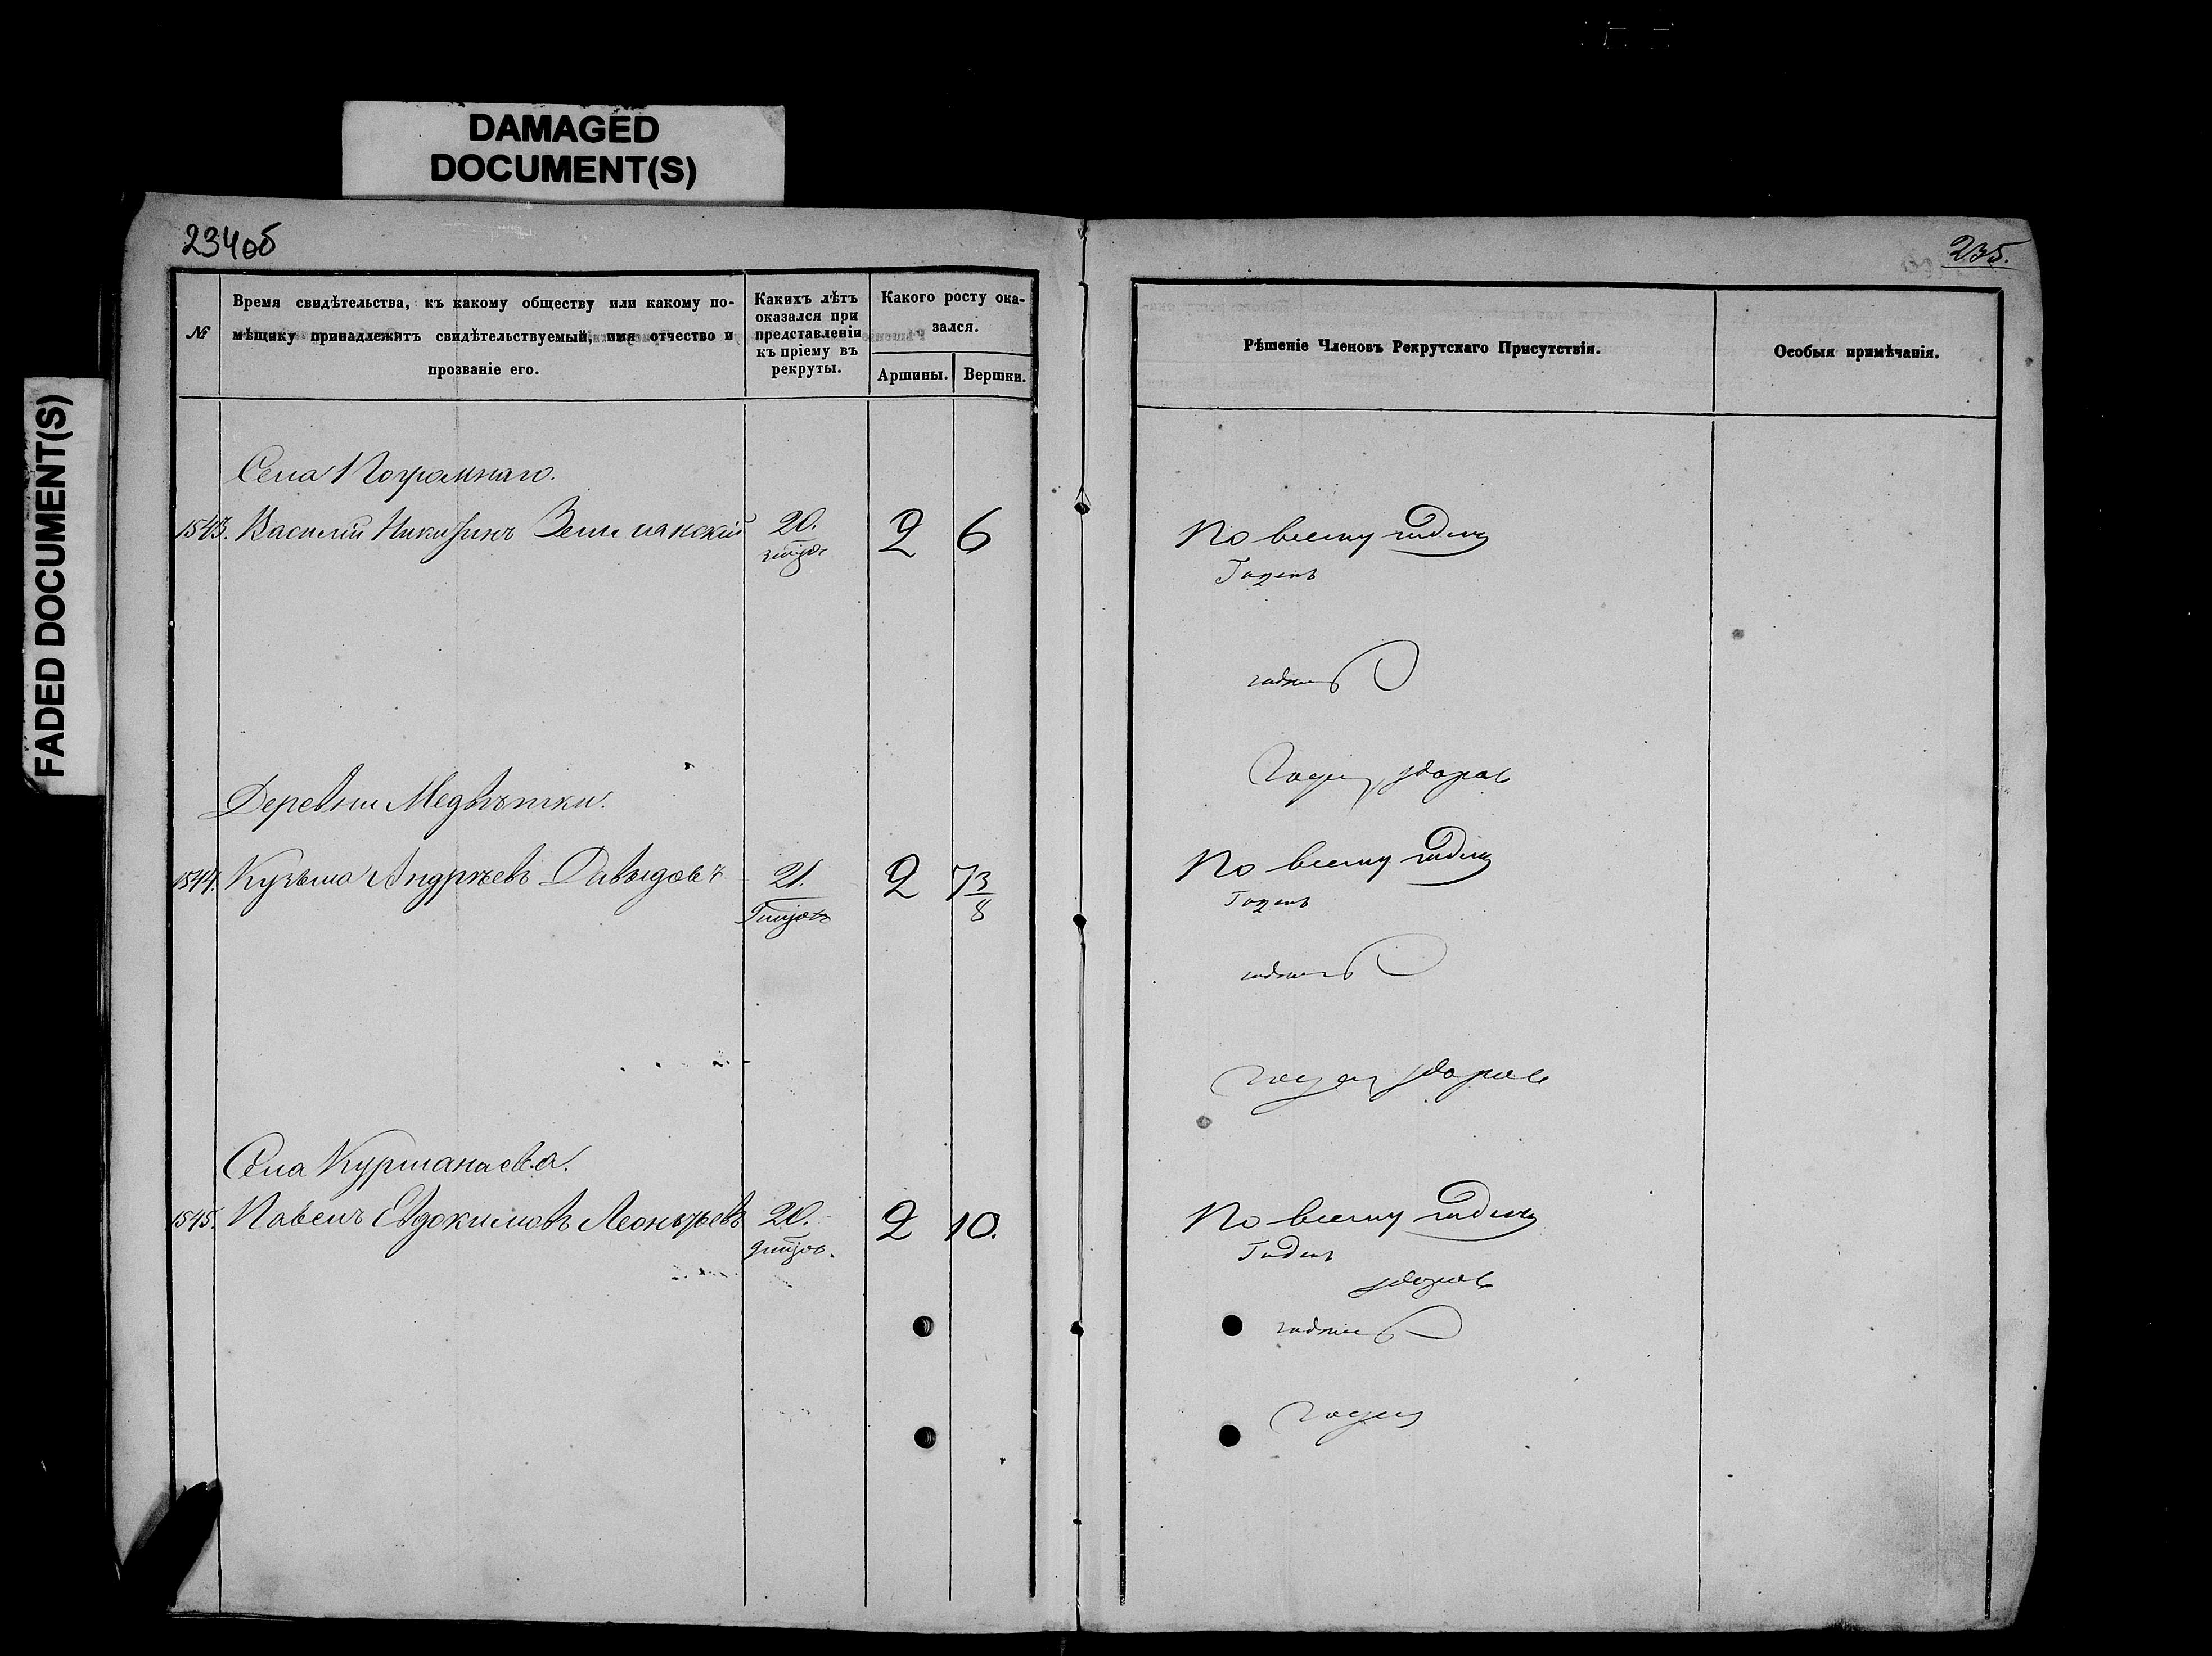 DAMAGED
DOCUMENT(S)
FADED DOCUMENT(S)
234об
№
Время свидѣтельства, къ какому обществу или какому по-
мѣщику принадлежитъ свидѣтельствуемый, имя отчество и
прозваніе его.
Какихъ лѣтъ
оказался при
представленіи
къ пріему въ
рекруты.
Какого росту ока-
зался.
Аршины.
Вершки.
Села Погромнаго.
1543. Василій Никитинъ 20. 2 6
Деревни Медвѣтки.
1544. Кузьма Андреевъ Давыдовъ 21. 2 7 3/8
Села Курманаева.
1545. Павелъ Евдокимовъ Леонтьевъ 20. 2 10.
235.
Рѣшеніе Членовъ Рекрутскаго Присутствія.
Особыя примѣчанія.
По всему годенъ
Годенъ
годенъ
Годенъ здоровъ
По всему годенъ
Годенъ
годенъ
годенъ здоровъ
По всему годенъ
Годенъ
здоровъ
годенъ
годенъ